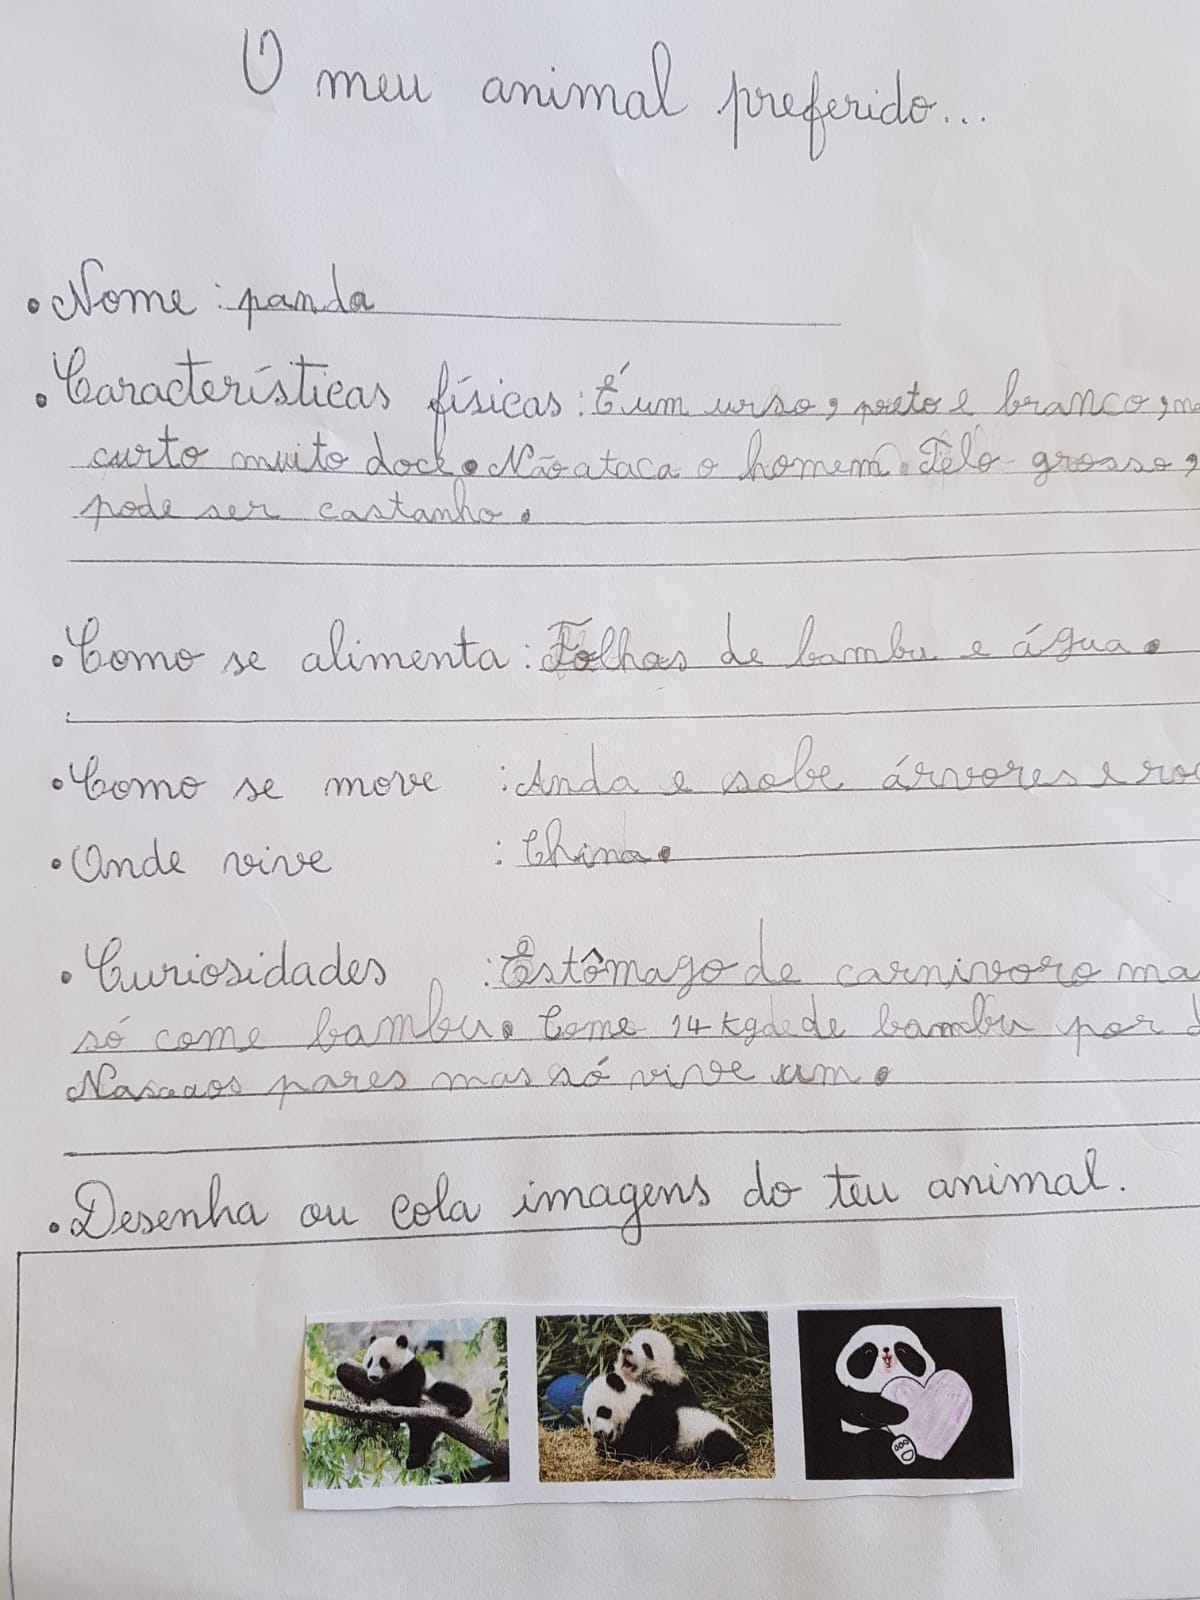 O meu animal preferido...
• Nome : panda
• Características físicas : É um urso, preto e branco,
curto muito doce. Não ataca o homem. Pêlo grosso,
pode ser castanho.
• Como se alimenta : Folhas de bambu e água.
• Como se move : Anda e sobe árvores e
• Onde vive : China.
• Curiosidades : Estômago de carnivoro
só come bambu. Come 14 kg de de bambu por
pares mas só vive um.
• Desenha ou cola imagens do teu animal.